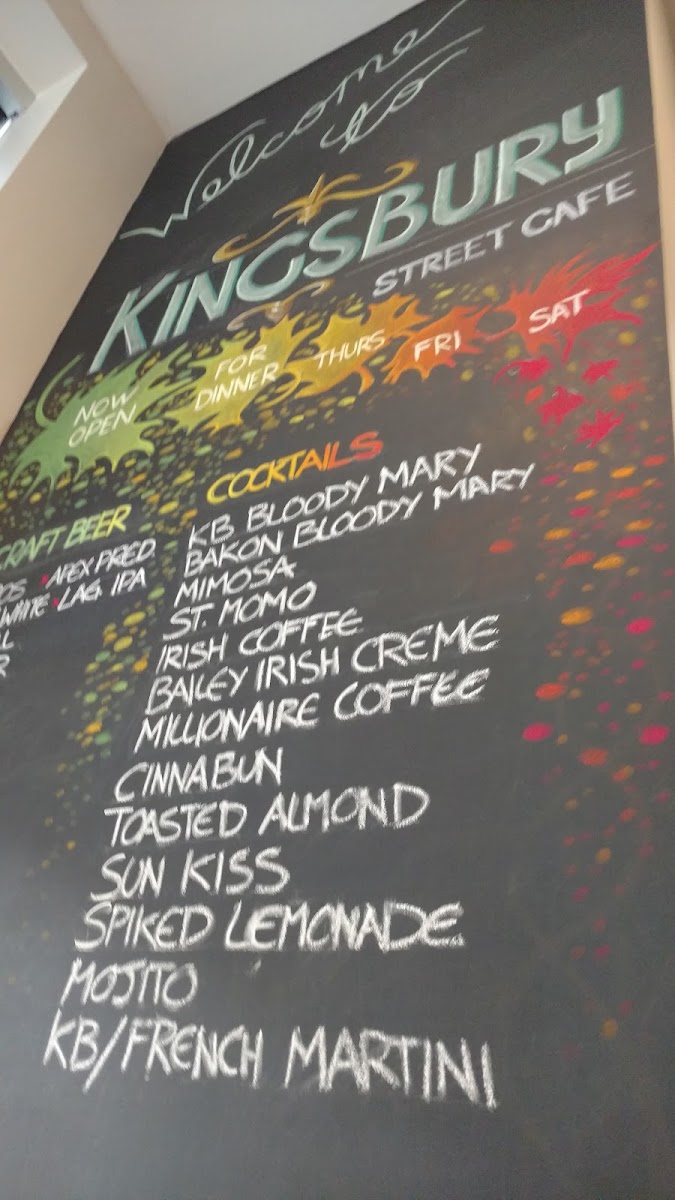 Welcome
to
KINGSBURY
STREET CAFE
NOW
OPEN
FOR
DINNER
THURS
FRI
SAT
CRAFT BEER
APEX PRED.
WHITE • LAG. IPA
COCKTAILS
KB BLOODY MARY
BAKON BLOODY MARY
MIMOSA
ST. MOMO
IRISH COFFEE
BAILEY IRISH CREME
MILLIONAIRE COFFEE
CINNABUN
TOASTED ALMOND
SUN KISS
SPIKED LEMONADE
MOJITO
KB/FRENCH MARTINI